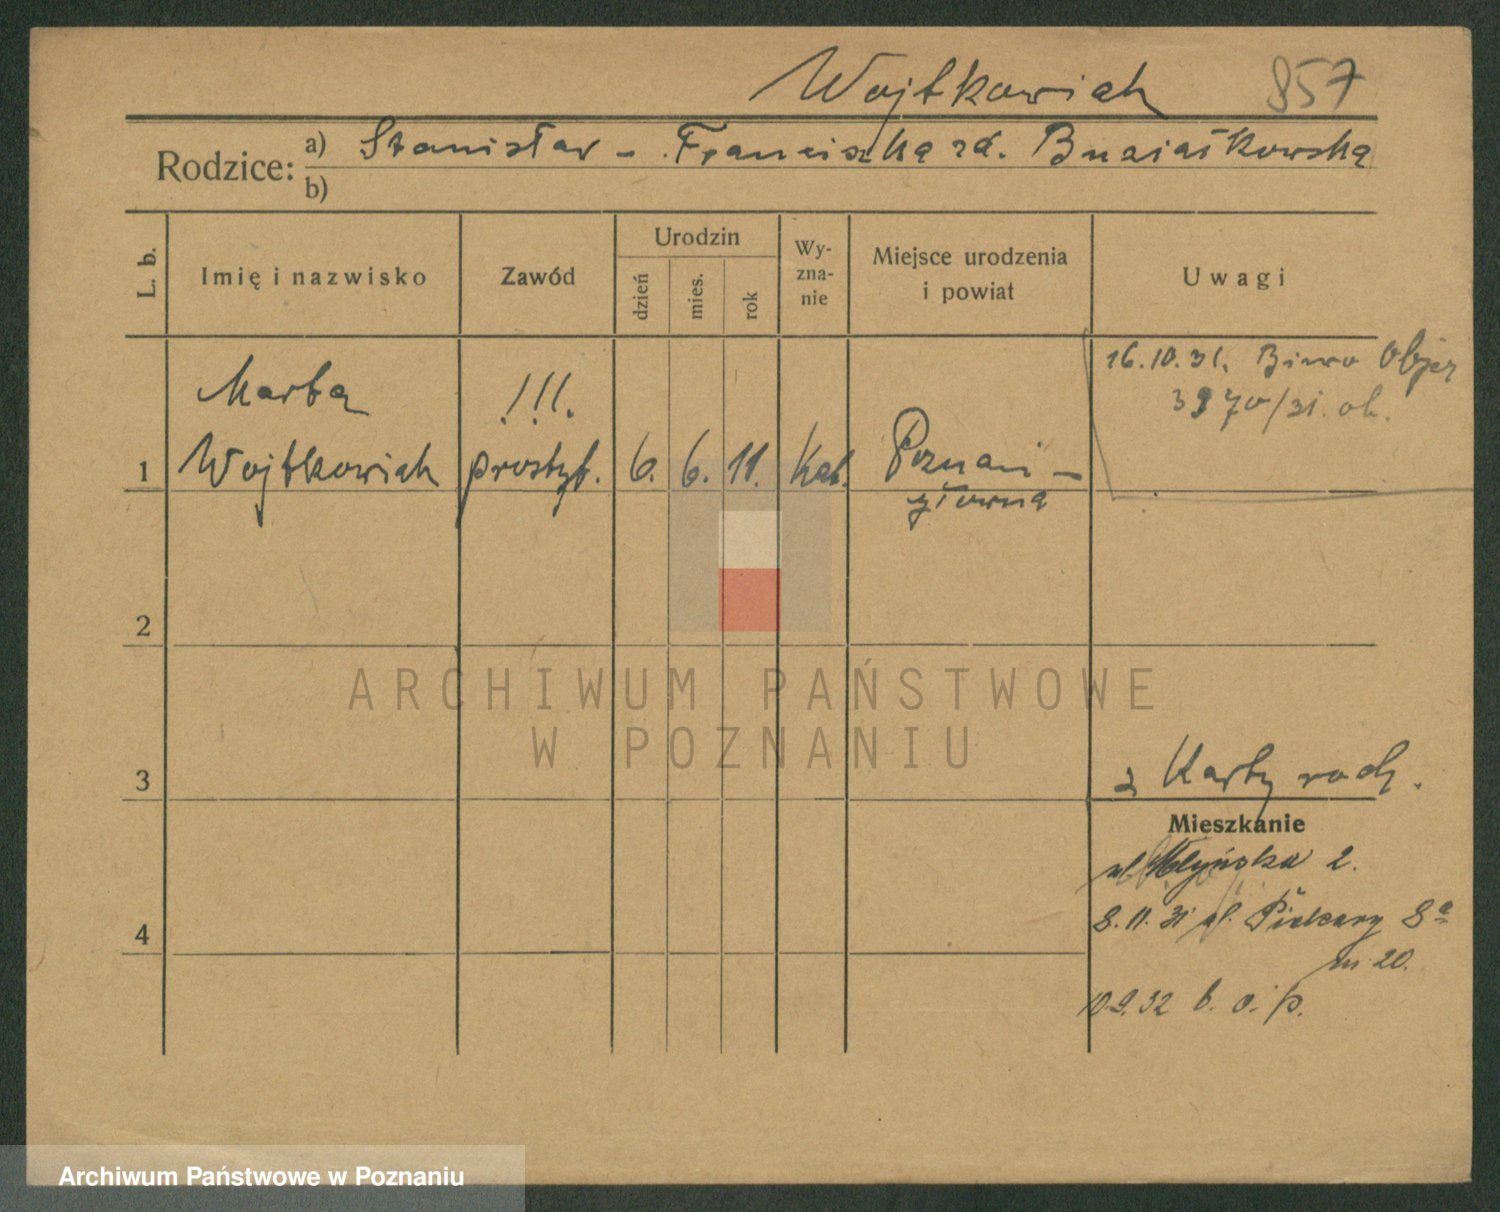 Wojtkowiak 857
Rodzice: a) Stanisław - Franciszka zd.
b)
L. b.
Imię i nazwisko
Zawód
Urodzin
dzień
mies.
rok
Wy-
zna-
nie
Miejsce urodzenia
i powiat
Uwagi
16.10.31. Biuro
3970/31.
1
Marta
Wojtkowiak
!!!.
prostyt.
6. 6. 11.
Kat.
Poznań -
główna
2
ARCHIWUM PAŃSTWOWE
W POZNANIU
3
z Karty rodz.
Mieszkanie
ul. 2.
4
8.11.31 ul. Piekary 8a
m 20.
10.9.32 b. o. p.
Archiwum Państwowe w Poznaniu